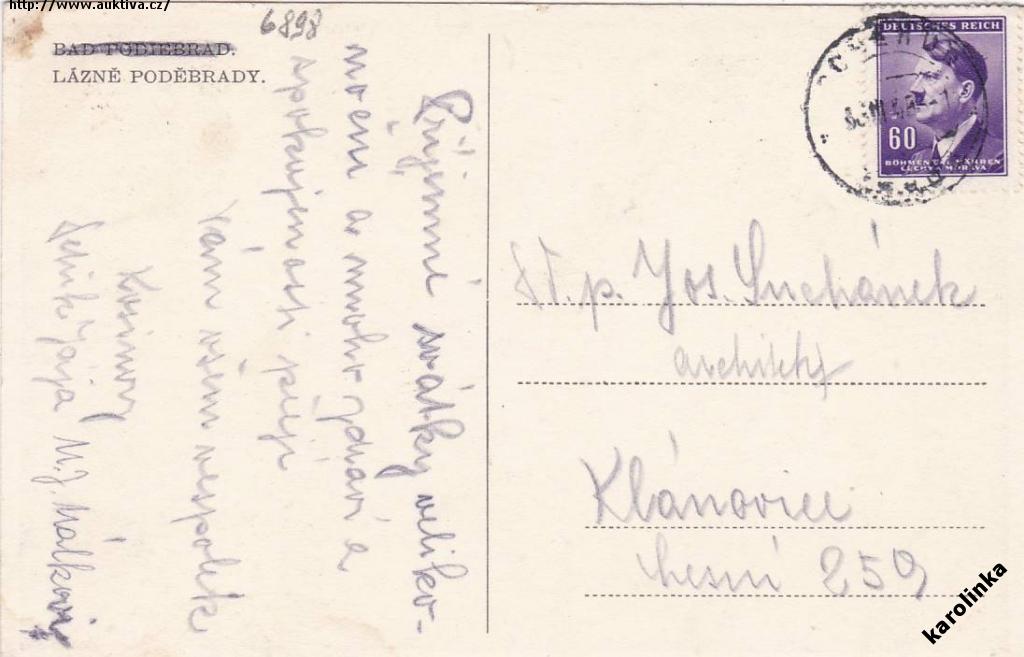 http://www.auktiva.cz/
6898
BAD PODIEBRAD.
LÁZNĚ PODĚBRADY.
Příjemné svátky veliko-
noční a mnoho zdraví a
spokojenosti přeji
Vám všem vespolek
Jája M.J. Málkovi
DEUTSCHES REICH
60
BÖHMEN U. MÄHREN
ČECHY A MORAVA
Jos. Suchánek
architekt
Klánovice
Lesní 259
karolinka